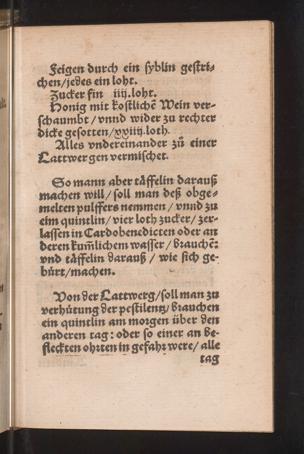 Feigen durch ein syblin gestri-
chen/jedes ein loht.
Zucker fin iiij.loht.
Honig mit kostlichē Wein ver-
schaumbt/vnnd wider zu rechter
dicke gesotten/xxiiij.loth.
Alles vndereinander zů einer
Lattwergen vermischet.
So mann aber täffelin darauß
machen will/soll man deß obge-
melten pulffers nemmen/vnnd zu
eim quintlin/vier loth zucker/zer-
lassen in Cardobenedicten oder an
deren kum̃lichem wasser/brauchē:
vnd täffelin darauß/wie sich ge-
bürt/machen.
Von der Lattwerg/soll man zu
verhütung der pestilentz/brauchen
ein quintlin am morgen über den
anderen tag: oder so einer an be-
fleckten ohrten in gefahr were/alle
tag